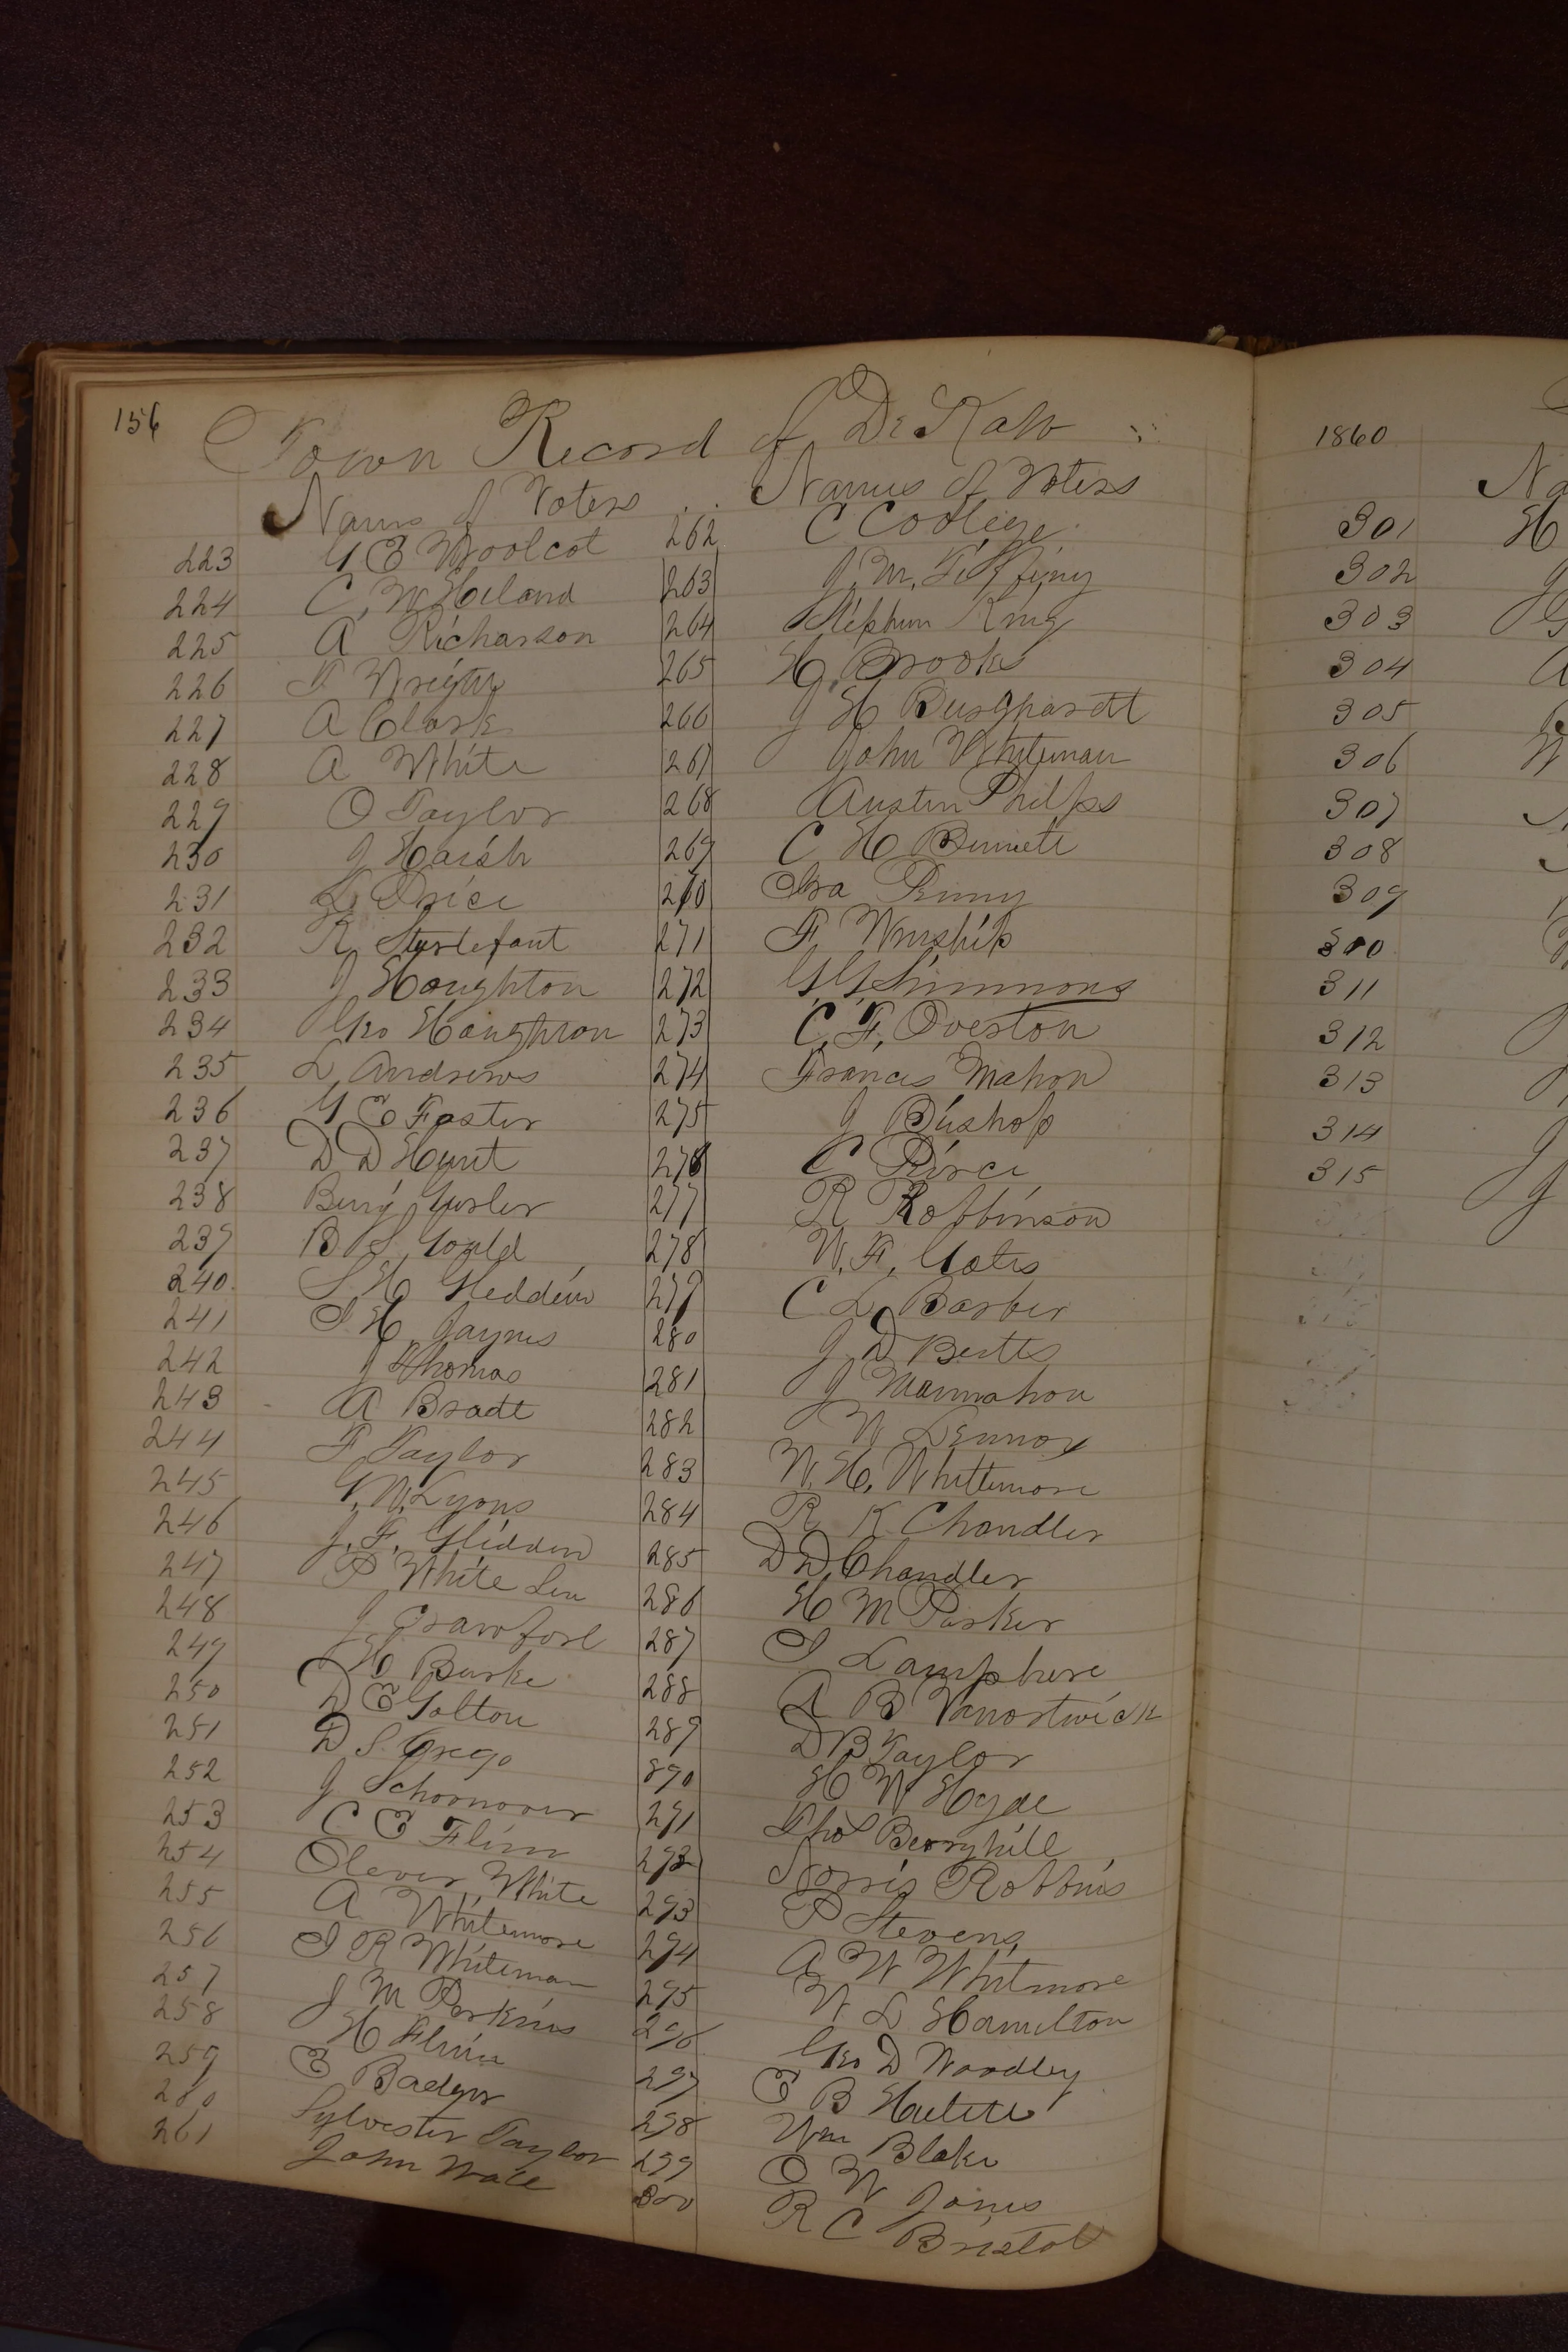 156
Town Record of DeKalb
Names of Voters
223 G E Woolcot
224 C. W Heland
225 A Richarson
226 T Wright
227 A Clark
228 A White
229 O Taylor
230 J Haish
231 L Price
232 R. Sturtefant
233 J Houghton
234 Geo Houghton
235 L Andrews
236 G E Foster
237 D D Hunt
238 Benj Gurler
239 B S Gould
240 S H Gleddein
241 I H Jaynes
242 J Thomas
243 A Bradt
244 F Taylor
245 G. W. Lyons
246 J. F. Glidden
247 P White Sen
248 J Crawford
249 H Burke
250 D E Golton
251 D S Grego
252 J Schoonover
253 C E Flinn
254 Olever White
255 A Whitemore
256 I R Whiteman
257 J M Perkins
258 H Flinn
259 E Badger
260 Sylvester Taylor
261 John Wale
Names of Voters
262 C Cooliege
263 J. M. Tiffiny
264 Stephen King
265 H Brooks
266 J H Burghardt
267 John Whiteman
268 Austin Philps
269 C H Bennett
270 Ira
271 F Winship
272 G. G. Simmons
273 C. F. Overton
274 Francis Mahon
275 J Bushop
276 C Pirce
277 R Robbinson
278 W. F. Gates
279 C L Barber
280 J D Betts
281 J Manmahon
282 W Lennox
283 W. H. Whittemore
284 R K Chandler
285 D D Chandler
286 H M Parker
287 I Lamphere
288 A B Vanostwick
289 D B Taylor
890 H W Hyde
291 Thos Berryhill
292 Norris Robbins
293 P Stevens
294 A W Whitmore
295 W L Hamilton
296 Geo D Woodley
297 E B Hulett
298 Wm Blake
299 O W Jones
300 R C Bristol
1860
Na
301 H
302 J
303 G
304 A
305
306 W
307
308
309
310
311
312
313
314 J
315 J